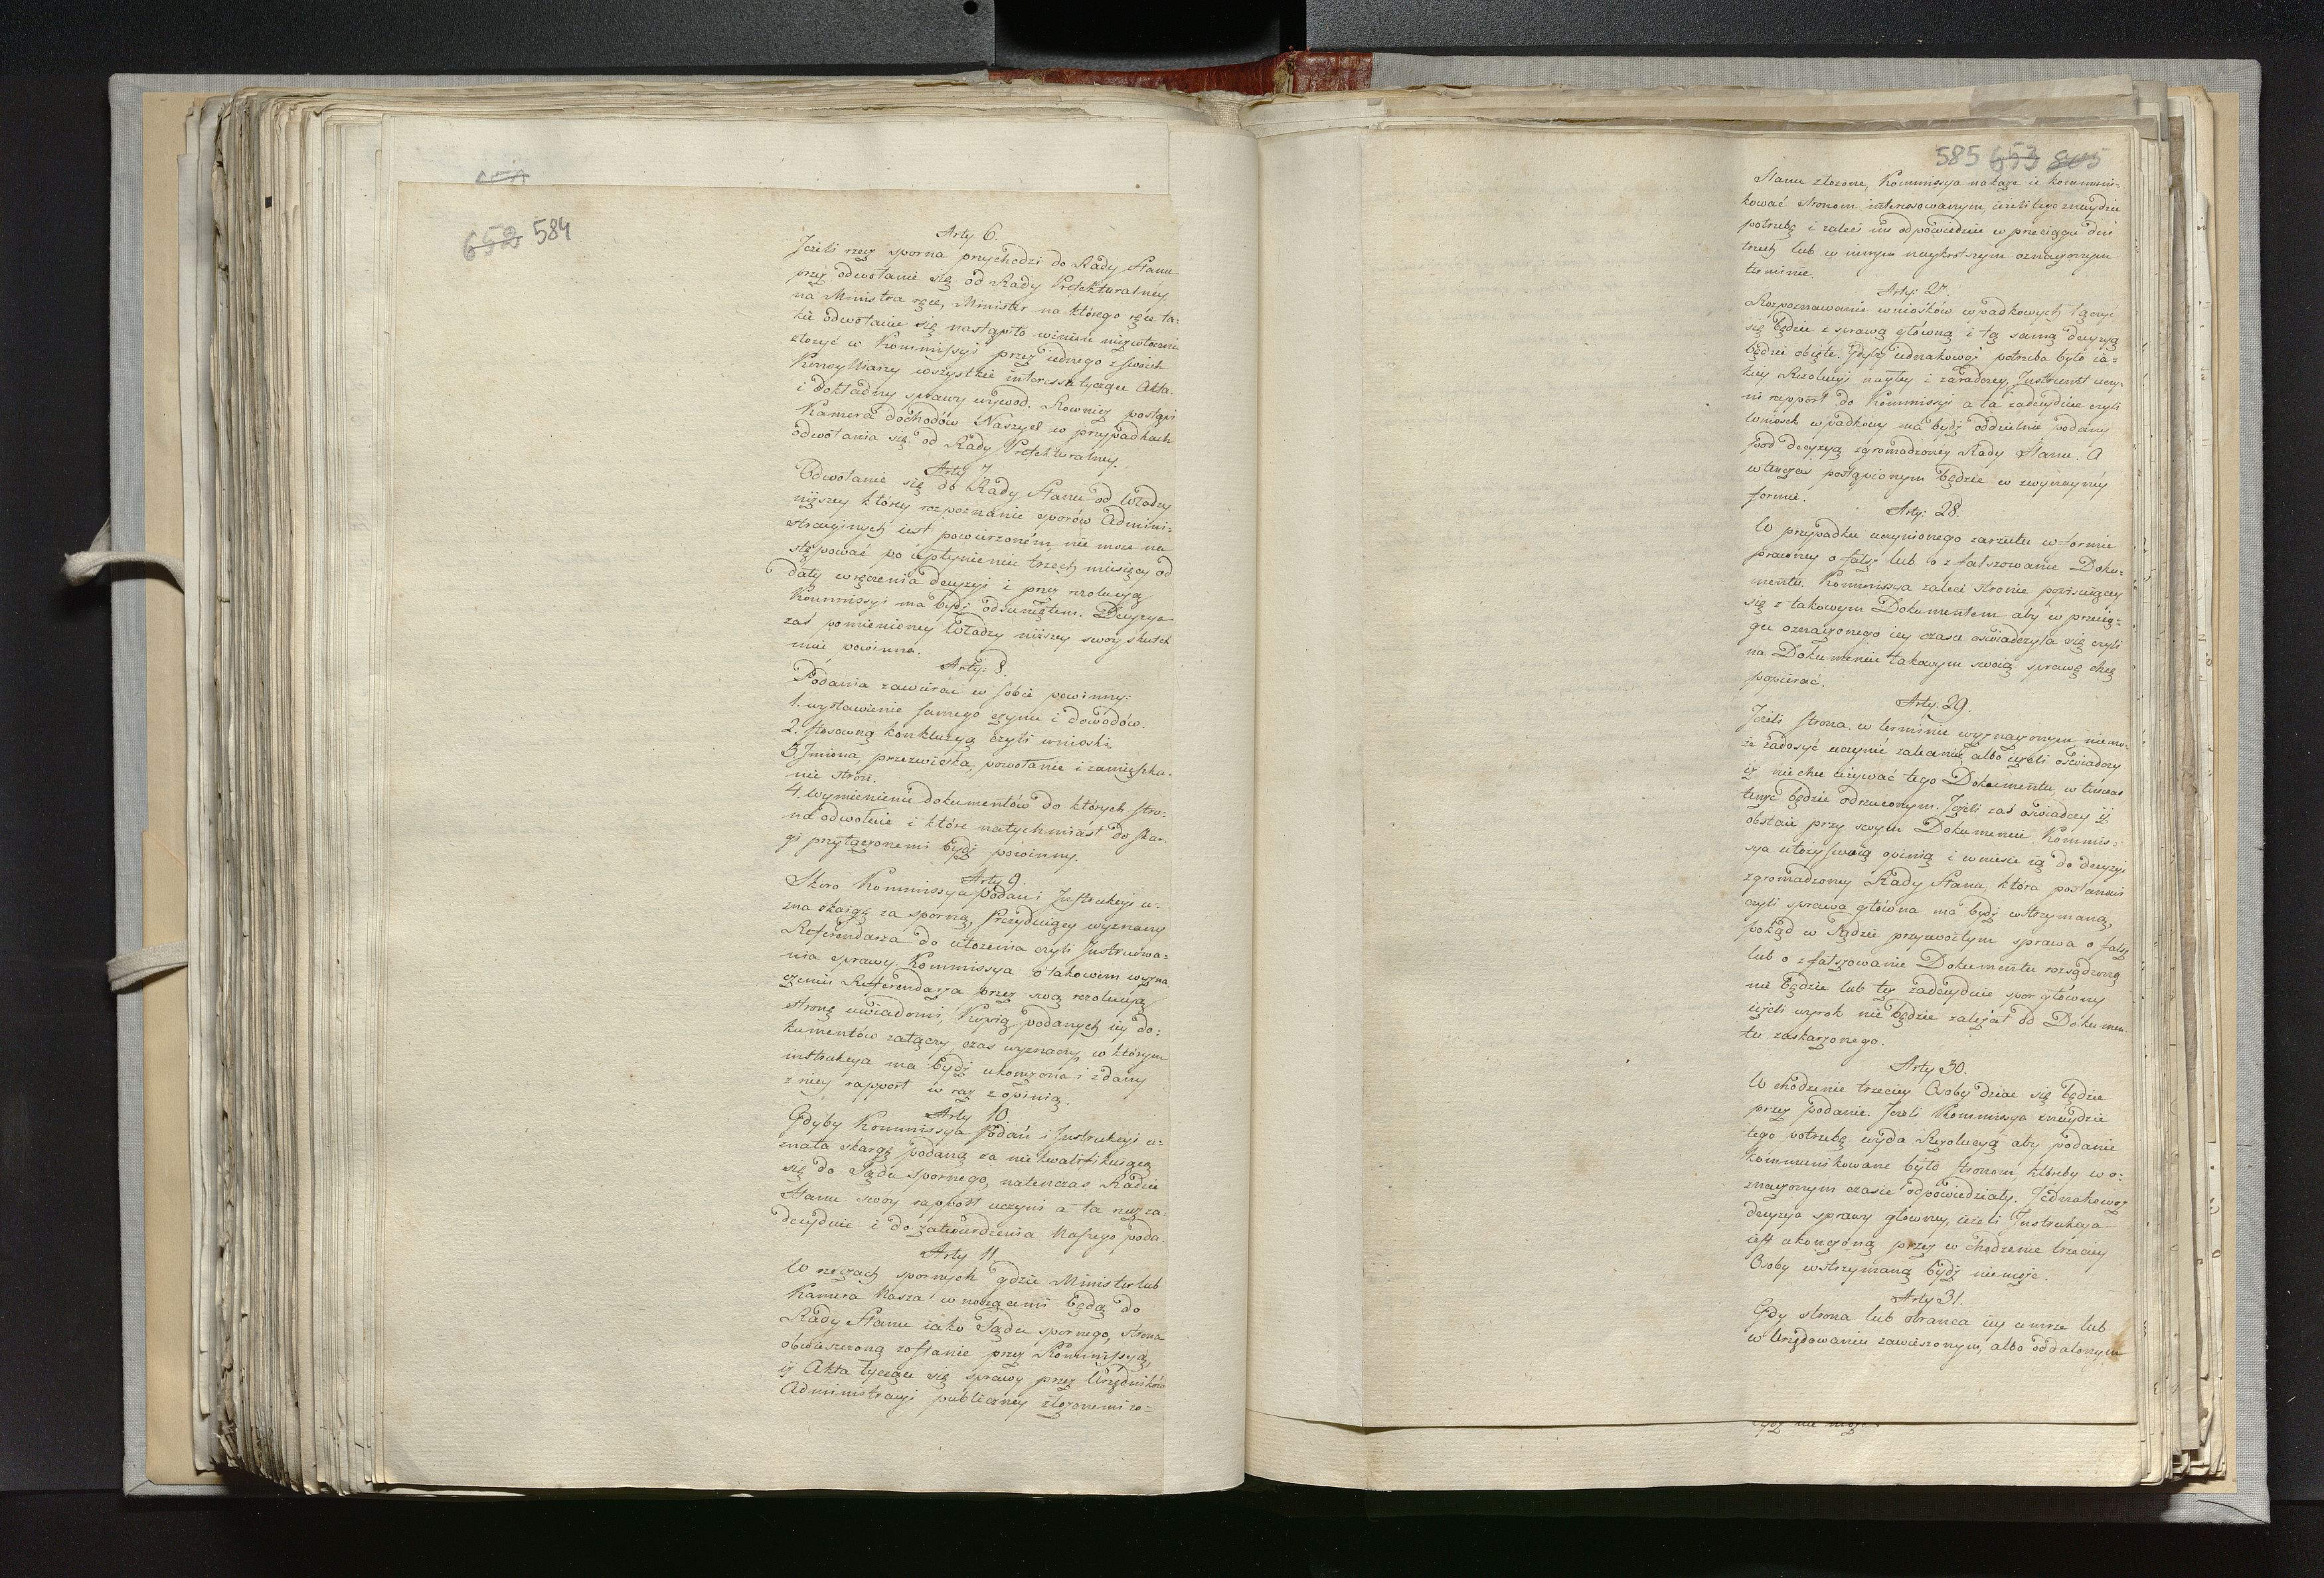 652 584
Arty 6.
Jeżeli rzecz sporna przychodzi do Rady Stanu
przez odwołanie się od Rady Prefekturalney
na Ministra ręce, Minister na którego ręce ta-
kie odwołanie się nastąpiło winien niezwłocznie
złożyć w Kommissyi przez iednego z swoich
Konsyliarzy wszystkie interessu tyczące Akta
i dokładny sprawy wywod. Rownież postąpi
Kamera dochodów Naszych w przypadkach
odwołania się od Rady Prefekturalney.
Arty 7.
Odwołanie się do Rady Stanu od Władzy
niższey którey rozpoznanie sporów Admini-
stracyinych iest powierzoném, nie może na
stępować po upłynieniu trzech miesięcy od
daty wręczenia decyzyi i przez rezolucyą
Kommissyi ma bydź odsuniętem. Decyzya
zaś pomienioney Władzy niższey swoy skutek
mieć powinna.
Arty: 8.
Podania zawierać w sobie powinny:
1. wystawienie samego czynu i dowodów.
2. stosowną konkluzyą czyli wnioski.
3 Jmiona, przezwiska, powołanie i zamieszka-
nie stron.
4. Wymienienie dokumentów do których stro-
na odwołuie i które natychmiast do skar-
gi przyłączonemi bydź powinny.
Arty 9.
Skoro Kommissya Podań i Jnstrukcyi u-
zna skargę za sporną, Prezyduiący wyznaczy
Referendarza do ułożenia czyli Jnstruowa-
nia sprawy. Kommissya o takowem wyzna
czeniu Referendarza przez swą rezolucyą
stronę uwiadomi, Kopią podanych iey do-
kumentów załączy, czas wyznaczy, w którym
instrukcya ma bydź ukonczona i zdany
z niey rapport w raz z opinią.
Arty 10.
Gdyby Kommissya Podań i Jnstrukcyi u-
znała skargę podaną za nie kwalifikuiącą
się do Sądu spornego, natenczas Radzie
Stanu swóy rapport uczyni a ta rzecz za-
decyduie i do zatwierdzenia Naszego poda.
Arty 11.
W rzeczach spornych gdzie Minister lub
Kamera Nasza wnoszącemi będą do
Rady Stanu iako Sądu spornego, strona
obwieszczoną zostanie przez Kommissyą,
iż Akta tyczące się sprawy przez Urzędników
Administracyi publiczney złożonemi zo-
585 653 805
Stanu złożone, Kommissya nakaże ie kommuni-
kować stronom interesowanym, ieżeli tego znaydzie
potrzebę i zaleci im odpowiedzieć w przeciągu dni
trzech lub w innym naykrotszym oznaczonym
terminie.
Arty: 27.
Rozpoznawanie wniosków wpadkowych łączyć
się będzie z sprawą główną i tą samą decyzyą
będzie obięte. Gdyby iednakowoż potrzeba było ia-
kiey Rezolucyi nagłey i zaradczey, Jnstruent uczy-
ni rapport do Kommissyi a ta zadecyduie czyli
wniosek wpadkowy ma bydź oddzielnie podany
pod decyzyą zgromadzoney Rady Stanu. A
wtenczas postąpionym będzie w zwyczayney
formie.
Arty: 28.
W przypadku uczynionego zarzutu w formie
prawney o fałsz lub o zfałszowanie Doku-
mentu, Kommissya zaleci stronie poprzeciącey
się z takowym Dokumentem aby w przecią-
gu oznaczonego iey czasu oświadczyła się czyli
na Dokumencie takowym swoią sprawę chce
popierać.
Arty. 29.
Jeżeli strona w terminie wyznaczonym niemo-
że zadosyć uczynić zaleceniu, albo ieżeli oświadczy
iż nie chce używać tego Dokumentu, w tenczas
tenże będzie odrzuconym. Jeżeli zaś oświadczy iż
obstaie przy swym Dokumencie Kommis-
sya ułoży swoią opinią i wniesie ią do decyzyi
zgromadzoney Rady Stanu, która postanowi
czyli sprawa główna ma bydź wstrzymaną,
pokąd w Sądzie przyzwoitym sprawa o fałsz
lub o zfałszowanie Dokumentu rozsądzoną
nie będzie lub też zadecyduie spor główny
ieżeli wyrok nie będzie zależał od Dokumen-
tu zaskarżonego.
Arty 30.
W chodzenie trzeciey Osoby dziać się będzie
przez podanie. Jeżeli Kommissya znaydzie
tego potrzebę wyda Rezolucyą aby podanie
kommunikowane było stronom, któreby w o-
znaczonym czasie odpowiedziały. Jednakowoż
decyzya sprawy główney, ieżeli Jnstrukcya
iest ukończoną przez w chodzenie trzeciey
Osoby wstrzymaną bydź nie może.
Arty 31.
Gdy strona lub obrańca iey umrze lub
w Urzędowaniu zawieszonym, albo oddalonym
bydź nie moż